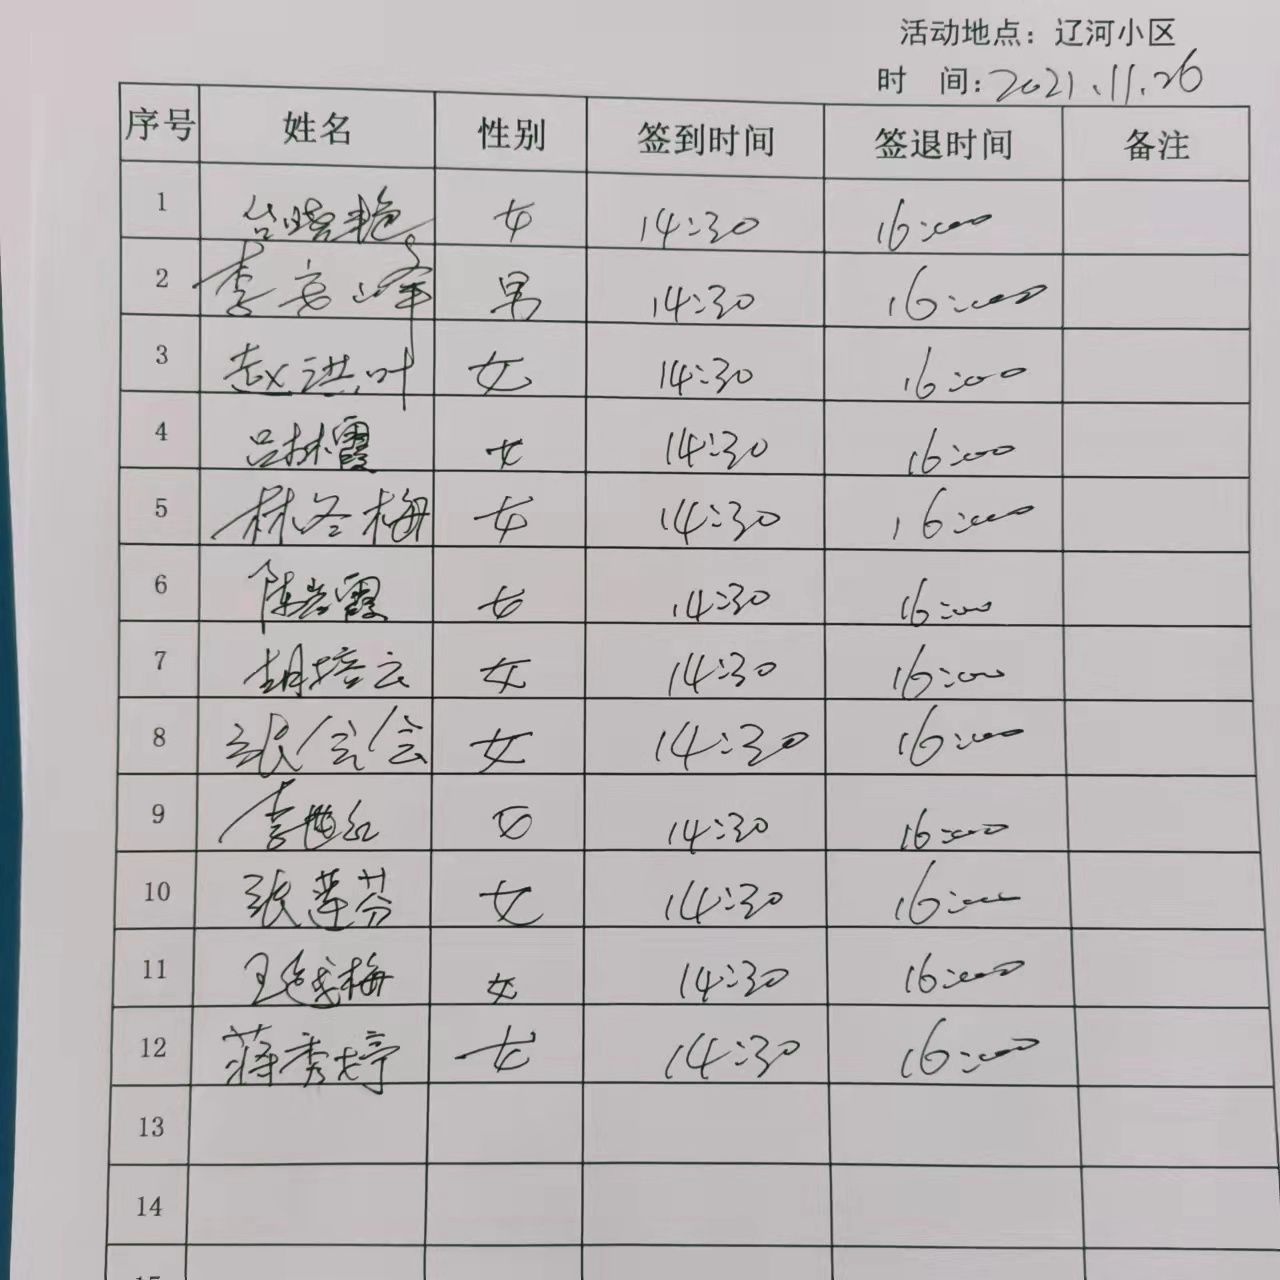 活动地点：辽河小区
时 间：2021.11.26
序号 姓名 性别 签到时间 签退时间 备注
1 台晓艳 女 14:30 16:00
2 李彦峰 男 14:30 16:00
3 赵洪叶 女 14:30 16:00
4 吕林霞 女 14:30 16:00
5 林冬梅 女 14:30 16:00
6 陈岩霞 女 14:30 16:00
7 胡培云 女 14:30 16:00
8 张会会 女 14:30 16:00
9 李艳红 女 14:30 16:00
10 张莲芬 女 14:30 16:00
11 王梅 女 14:30 16:00
12 蒋秀婷 女 14:30 16:00
13
14